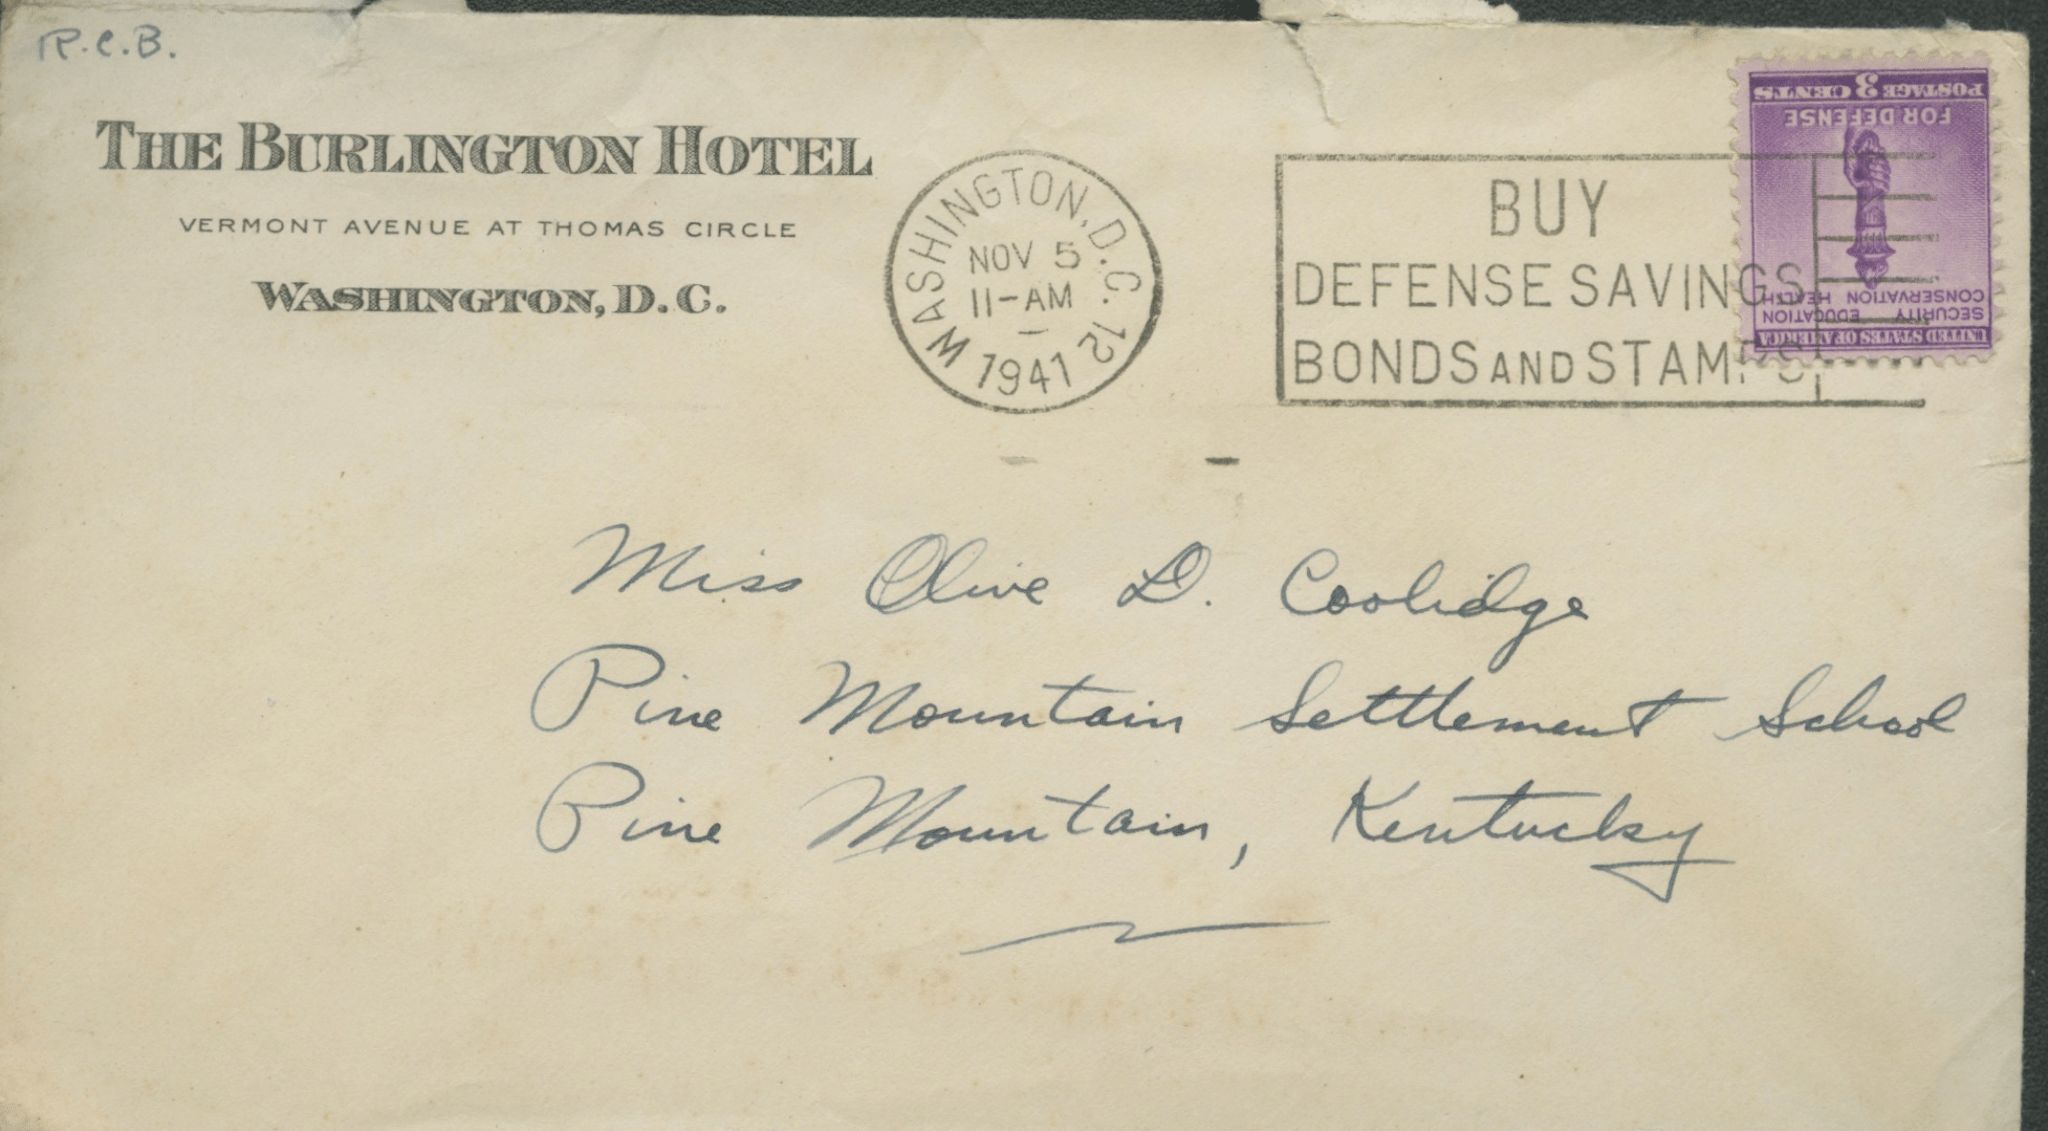 R.C.B.
THE BURLINGTON HOTEL
VERMONT AVENUE AT THOMAS CIRCLE
WASHINGTON, D.C.
WASHINGTON, D.C. 12
NOV 5
11-AM
1941
BUY
DEFENSE SAVINGS
BONDS AND STAMPS
UNITED STATES OF AMERICA
SECURITY EDUCATION
CONSERVATION HEALTH
FOR DEFENSE
POSTAGE 3 CENTS
Miss Olive D. Coolidge
Pine Mountain Settlement School
Pine Mountain, Kentucky